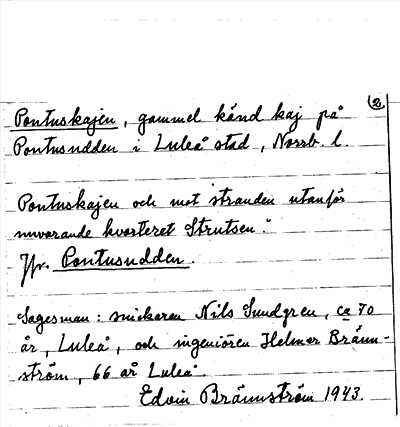 (2)
Pontuskajen, gammel känd kaj på
Pontusudden i Luleå stad, Norrb. l.
Pontuskajen och mot stranden utanför
nuvarande kvarteret Strutsen."
Jfr. Pontusudden.
Sagesman: snickaren Nils Sundgren, ca 70
år, Luleå, och ingeniören Helmer Bränn-
ström, 66 år Luleå.
Edvin Brännström 1943.